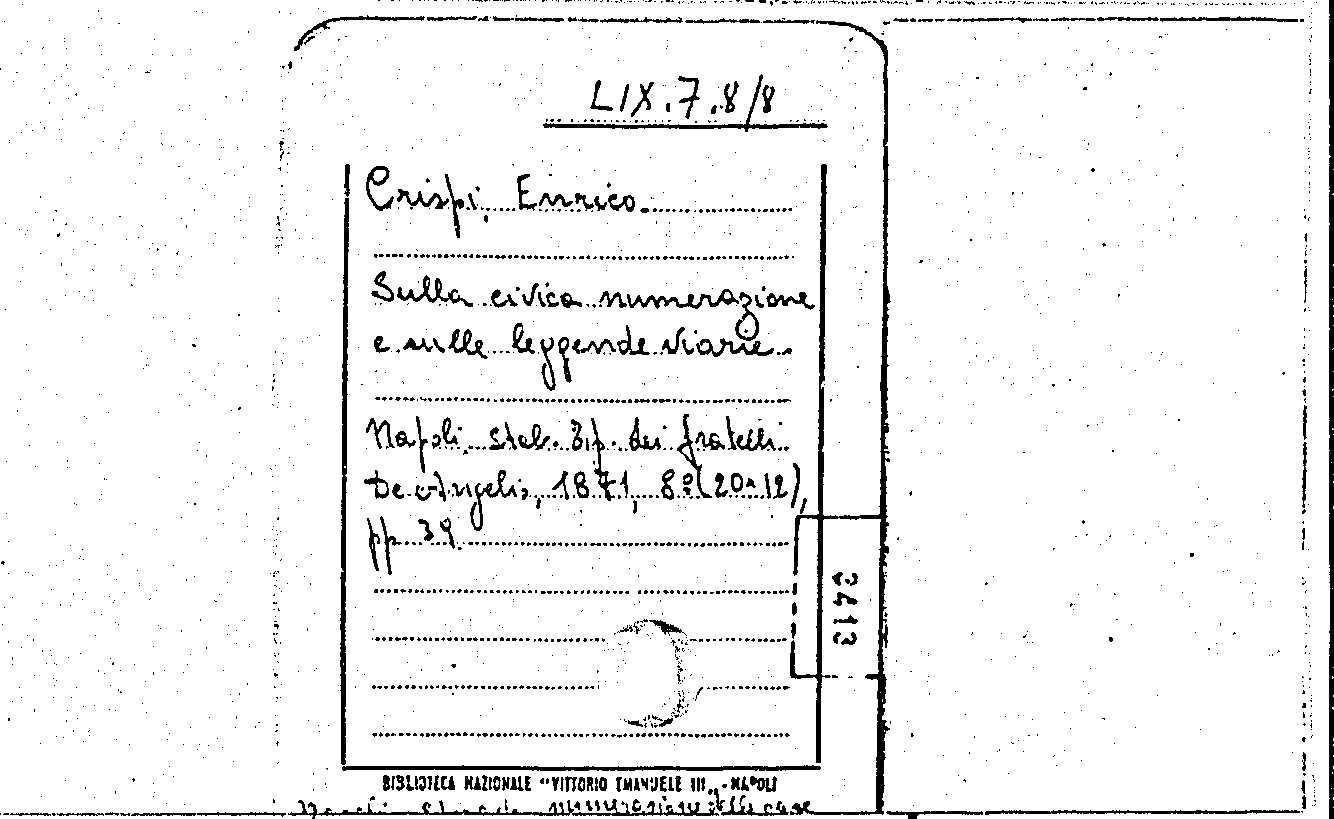 LIX.7.8/8
Crispi, Enrico.
Sulla civica numerazione
e sulle leggende viarie.
Napoli, stab. tip. dei fratelli
De Angelis, 1871, 8º (20×12),
pp. 39.
3413
BIBLIOTECA NAZIONALE "VITTORIO EMANUELE III„ - NAPOLI
numerazione delle case